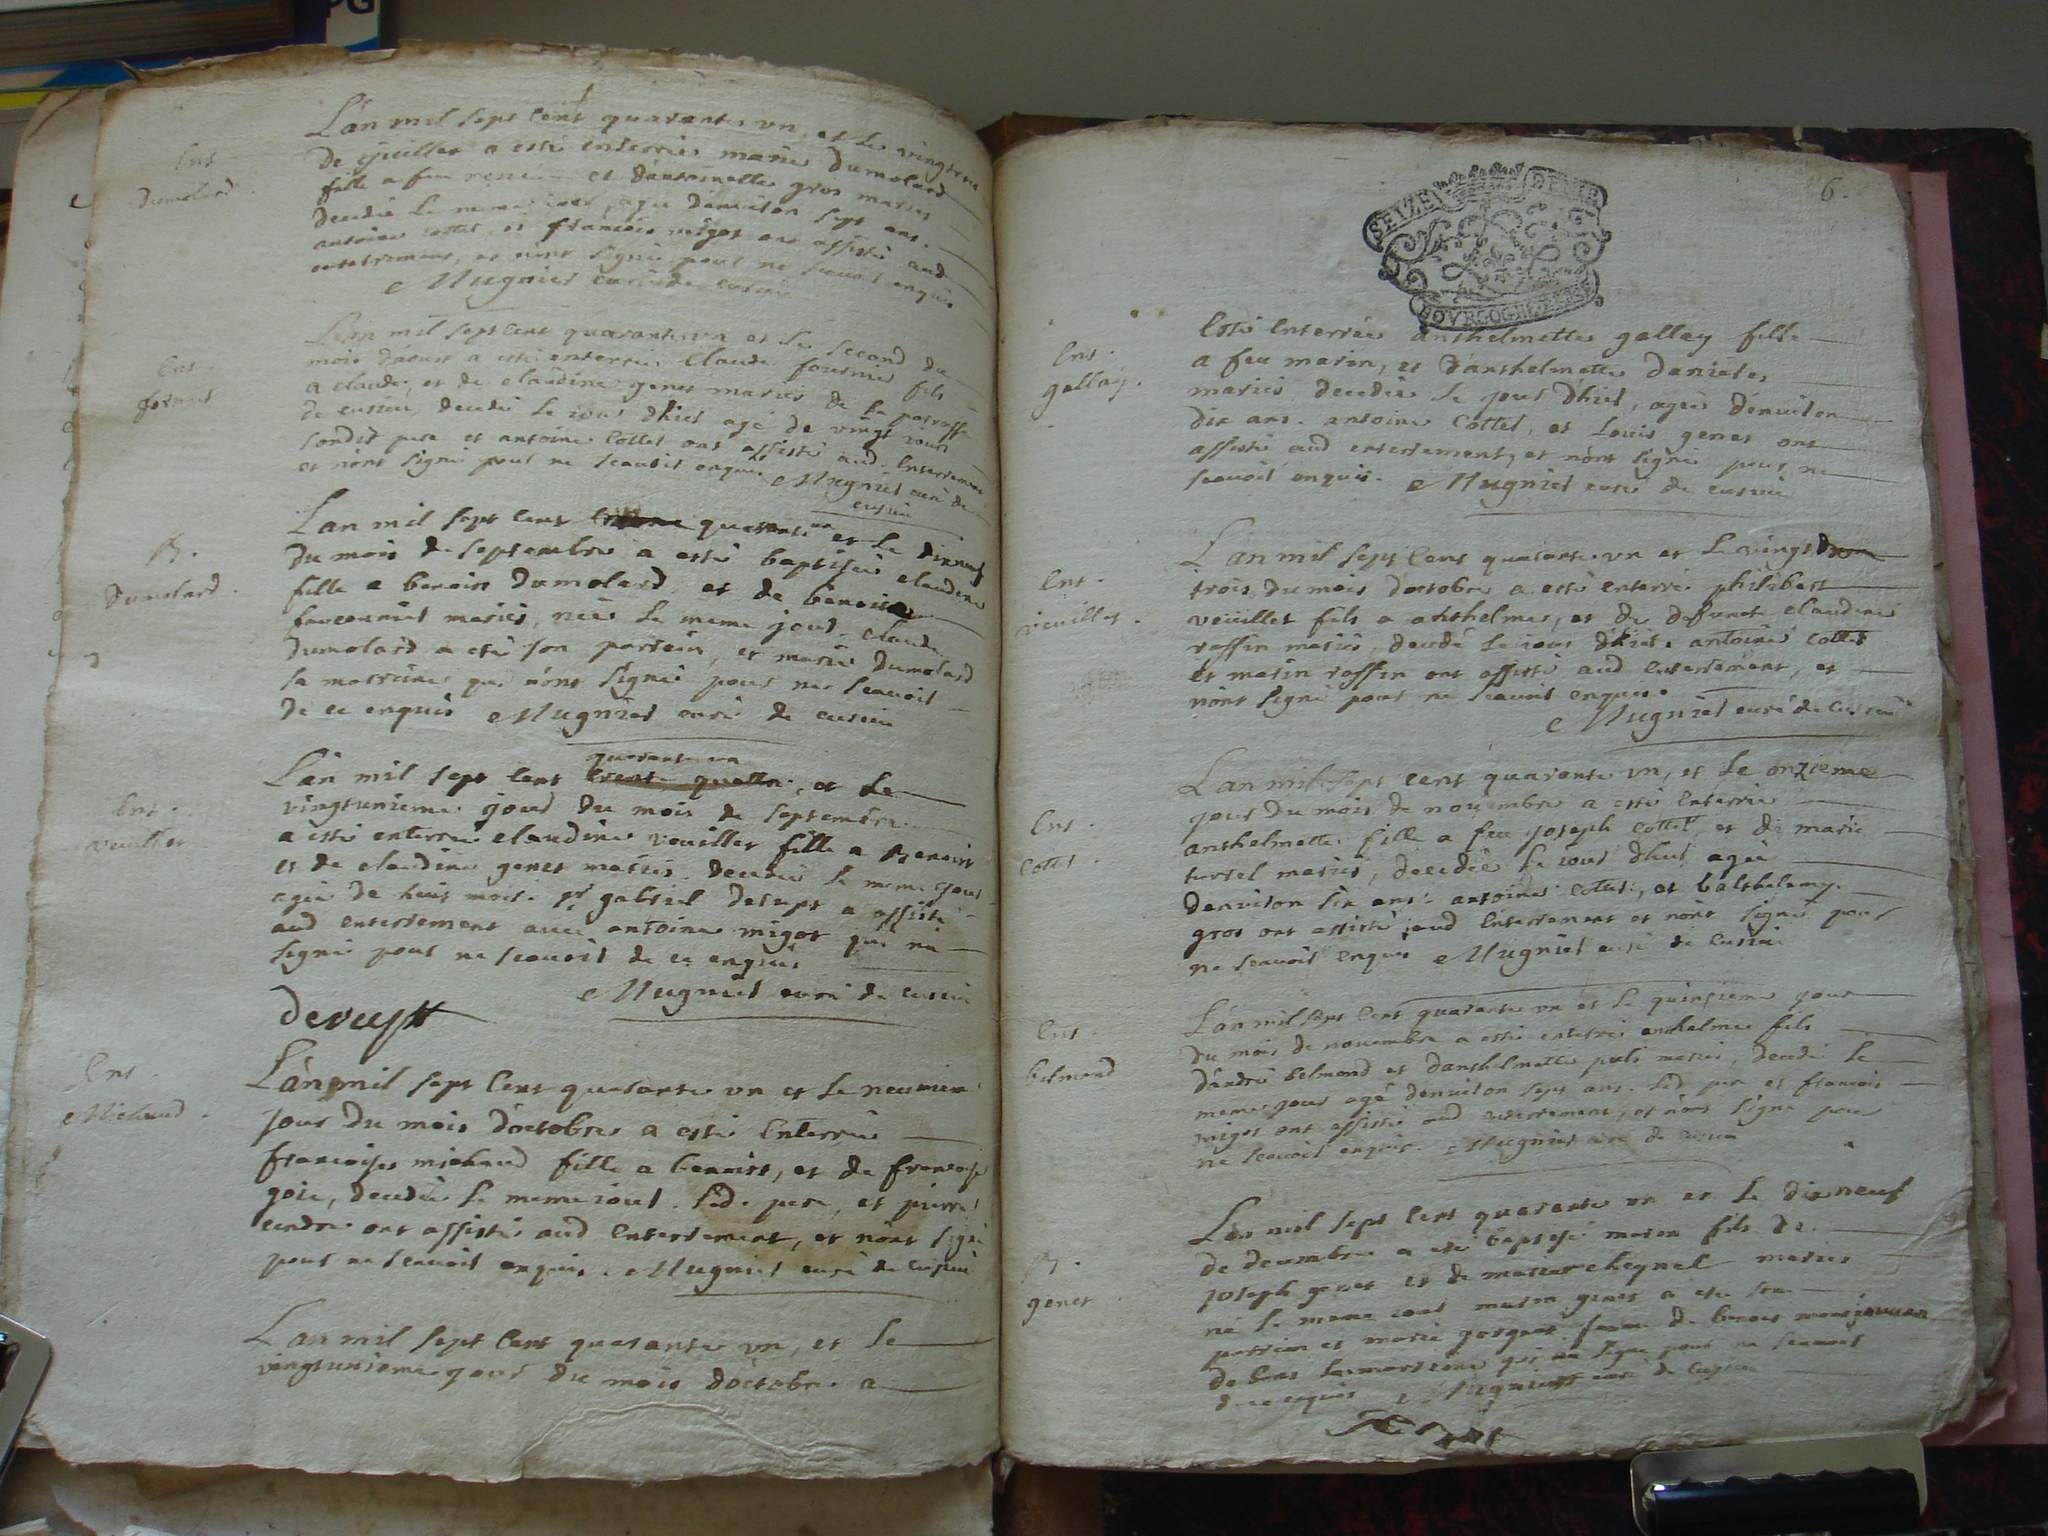 PG
L'an mil sept Cent quarante un, et le vingt
De juillet a esté enterrée marie Dumolard
fille a feu et d'antoinette gros mariés
Decedée le meme jour, agée d'environ sept ans.
antoine cottet, et francois migot ont assisté aud
enterrement, et n'ont signé pour ne scavoir enquis
Mugnier curé de cuzieu
Ent
Dumolard
L'an mil sept Cent quarante un et le second du
mois d'aoust a esté enterré Claude fournier fils
a claude, et de claudine genet mariés de la parroisse
de cusieu, decedé le jour d'hier agé de vingt jours
Sondit pere et antoine Cottet ont assisté aud. Enterrement
et n'ont signé pour ne scavoir enquis Mugnier curé de
cusieu
Ent.
fornier
L'an mil sept Cent quarante un et le dixneuf
Du mois de septembre a esté baptisée claudine
fille a benoist Dumolard, et de benoiste
mariés, née le meme jour. claude
Dumolard a eté son parrain, et marie Dumolard
sa marreine qui n'ont signé pour ne scavoir
de ce enquis Mugnier curé de cusieu
B.
Dumolard.
quarante un
L'an mil sept Cent trente quatre, et le
vingtunieme jour du mois de septembre
a esté enterrée claudine veuillet fille a Benoist
et de claudine genet mariés. Decedée le meme jour
agée de huit mois. sr gabriel Derupt a assisté
aud enterrement avec antoine migot qui n'a
signé pour ne scavoir de ce enquis
Mugnier curé de cusieu
Derupt
Ent.
veuillet
L'an mil sept Cent quarante un et le neuvieme
jour Du mois D'octobre a esté Enterrée
francoise michaud fille a benoist, et de francoise
goie, decedée le meme jour. led. pere, et pierre
cendre ont assisté aud Enterrement, et n'ont signé
pour ne scavoir enquis. Mugnier curé de cusieu
Ent.
Michaud.
L'an mil sept Cent quarante un, et le
vingtunieme jour du mois d'octobre a
6.
SEIZE DENIE
BOVRGOGNE
Esté Enterrée anthelmette gallay fille
a feu marin, et d'anthelmette Daniere,
mariés, decedée le jour d'hier, agée d'environ
dix ans. antoine Cottet, et Louis genet ont
assisté aud enterrement, et n'ont signé pour ne
scavoir enquis. Mugnier curé de cusieu
Ent.
gallay.
L'an mil sept Cent quarante un et le vingt
trois du mois d'octobre a esté enterré philibert
veuillet fils a anthelme, et de defunte claudine
roffin mariés, decedé le jour d'hier. antoine cottet
et marin roffin ont assisté aud enterrement, et
n'ont signé pour ne scavoir enquis.
Mugnier curé de cusieu
Ent.
veuillet.
L'an mil sept cent quarante un, et le onzieme
jour du mois de novembre a esté Enterrée
anthelmette fille a feu joseph cottet, et de marie
mariés, decedée le jour d'hier agée
d'environ six ans. antoine cottet, et balthelemy
gros ont assisté aud Enterrement et n'ont signé pour
ne scavoir enquis Mugnier curé de cusieu
Ent.
Cottet.
L'an mil sept Cent quarante un et le quinzieme jour
du mois de novembre a esté enterré anthelme fils
d'andré belmond et d'anthelmette mariés, decedé le
meme jour agé d'environ sept ans. Led pere et francois
migot ont assisté aud enterrement, et n'ont signé pour
ne scavoir enquis. Mugnier curé de cusieu
Ent
belmond
L'an mil sept Cent quarante un et le dixneuf
de decembre a eté baptisé marin fils de
joseph genet et de mariés
né le meme jour marin genet a eté son
parrain et marie femme de benoit
marreine qui n'a signé pour ne scavoir
de ce enquis Mugnier curé de cusieu
B.
genet